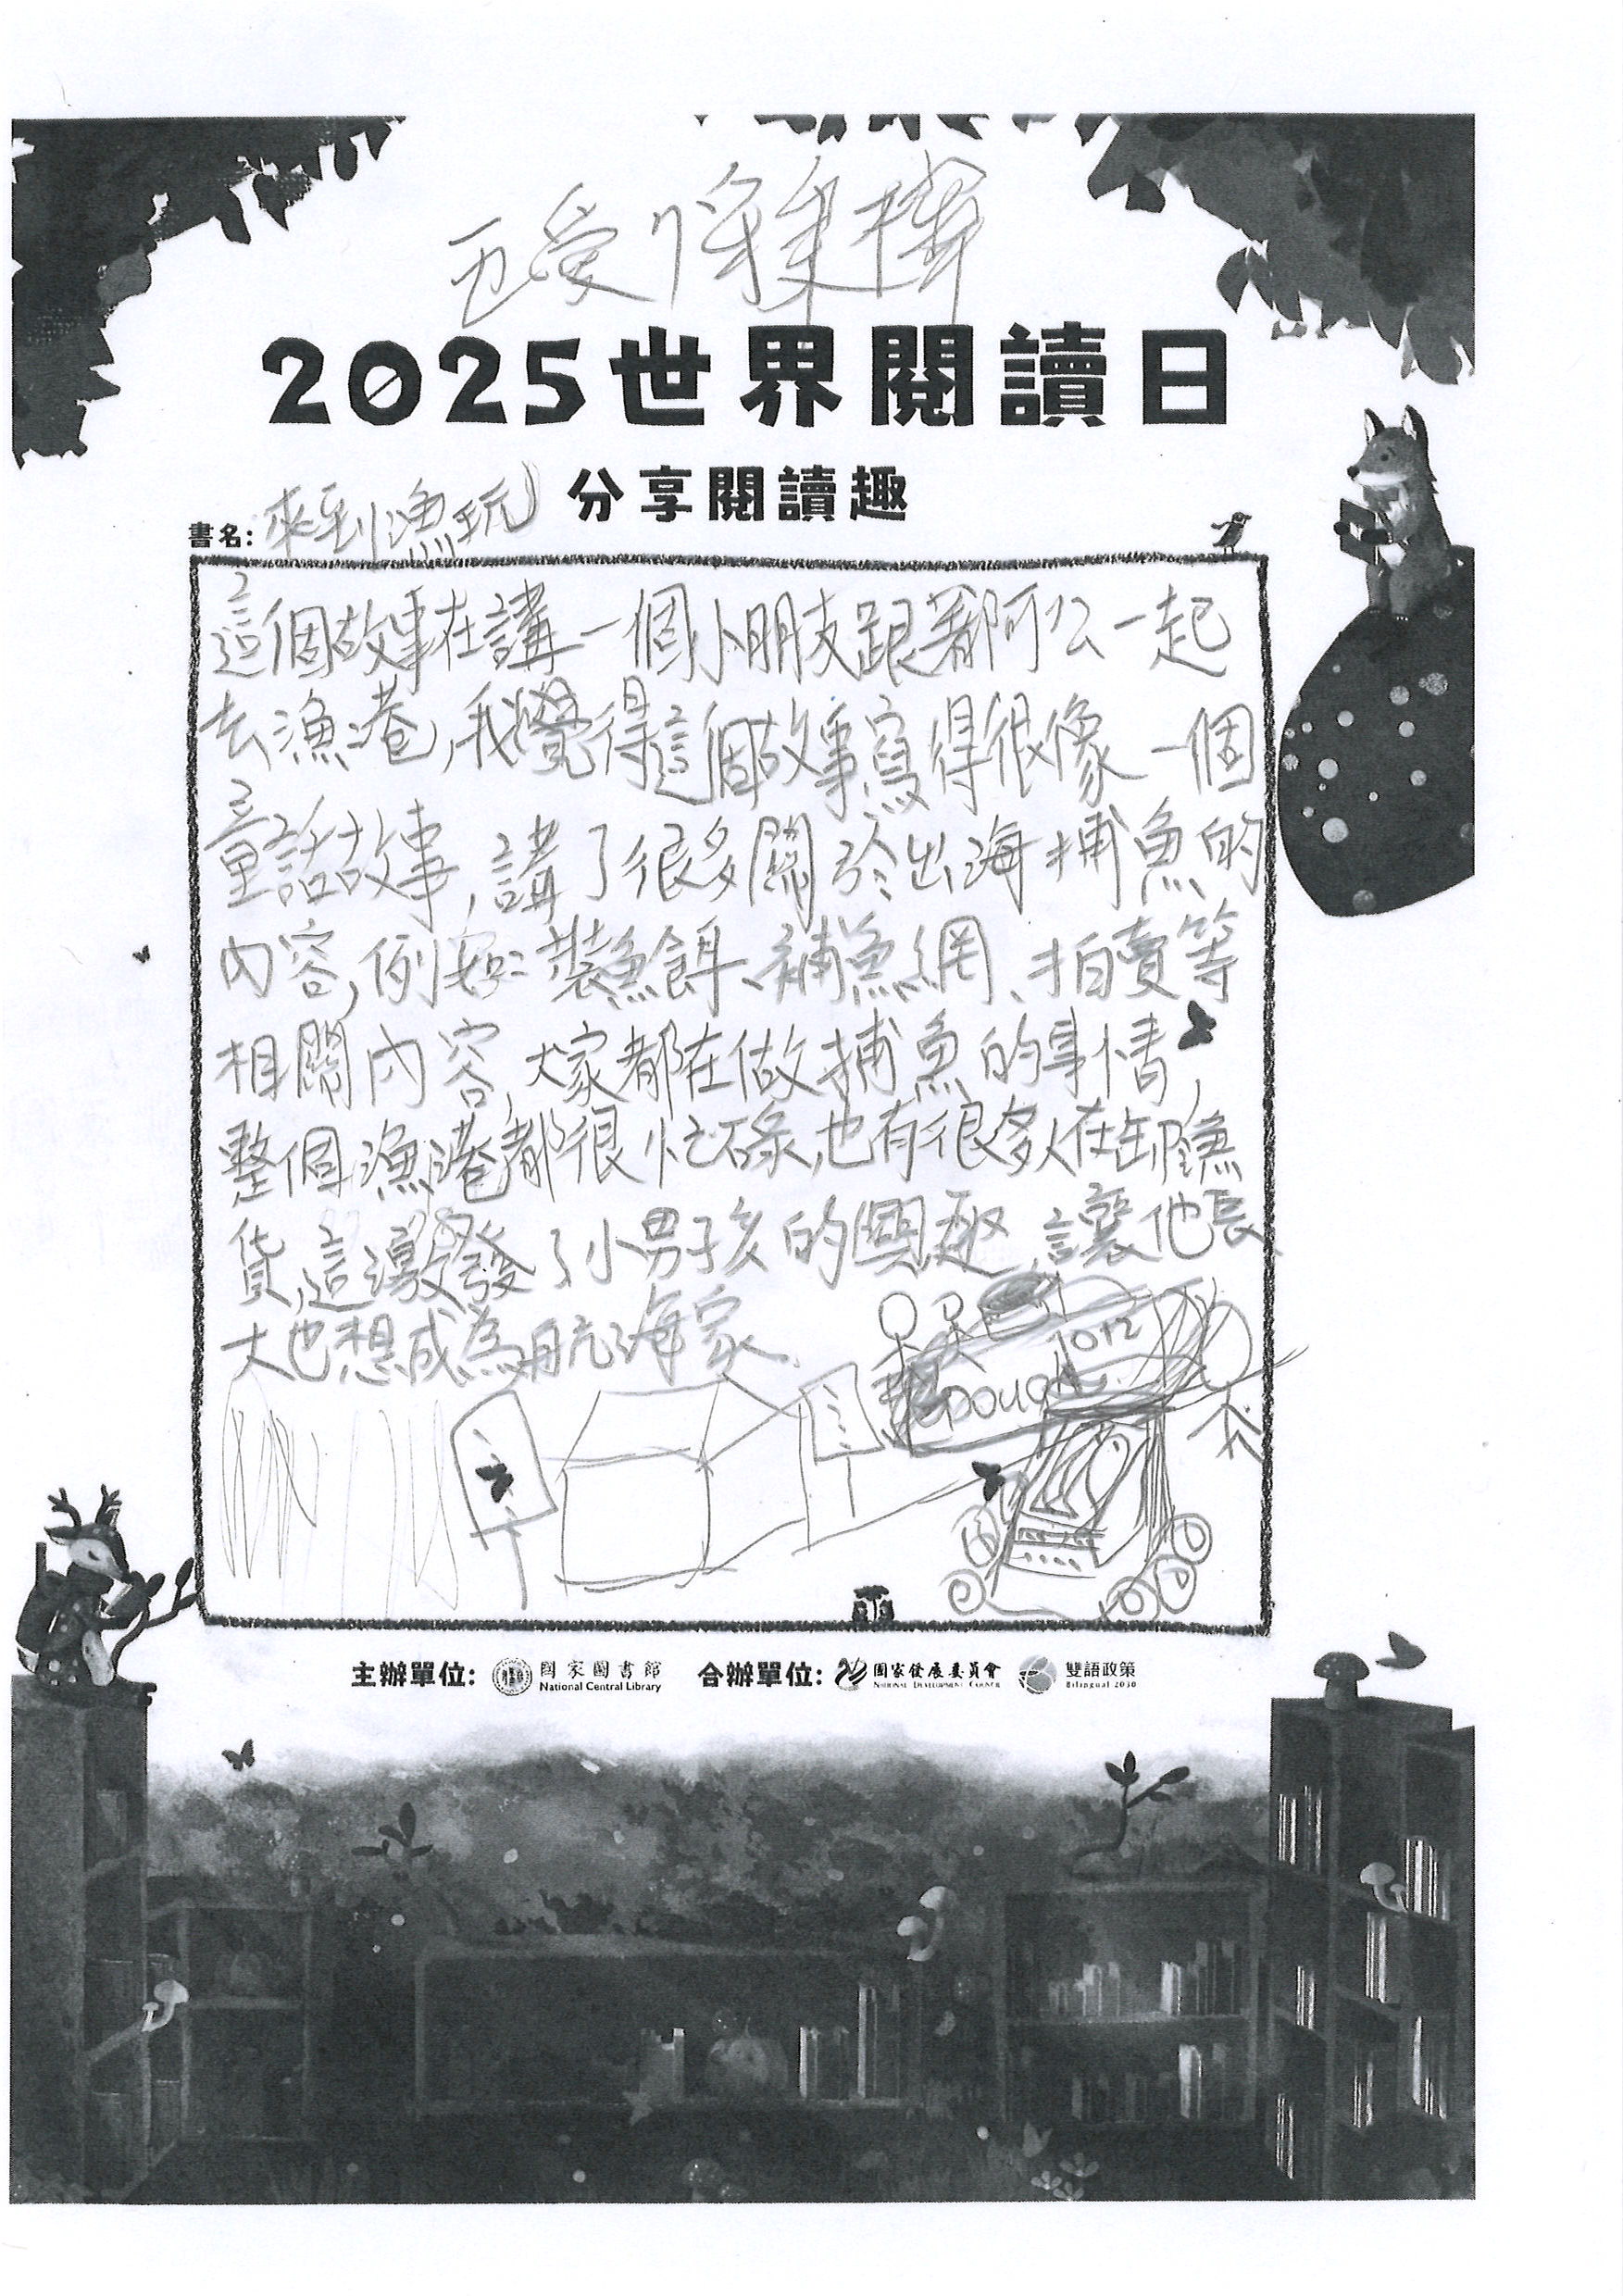 五愛
2025世界閱讀日
分享閱讀趣
書名:來到漁玩
這個故事在講一個小朋友跟著阿公一起
去漁港,我覺得這個故事寫得很像一個
童話故事,講了很多關於出海捕魚的
內容,例如:裝魚餌、補魚網、拍賣等
相關內容,大家都在做捕魚的事情,
整個漁港都很忙碌,也有很多人在卸
貨,這激發了小男孩的興趣,讓他長
大也想成為航海家.
主辦單位: 國家圖書館 National Central Library 合辦單位: 國家發展委員會 NATIONAL DEVELOPMENT COUNCIL 雙語政策 Bilingual 2030